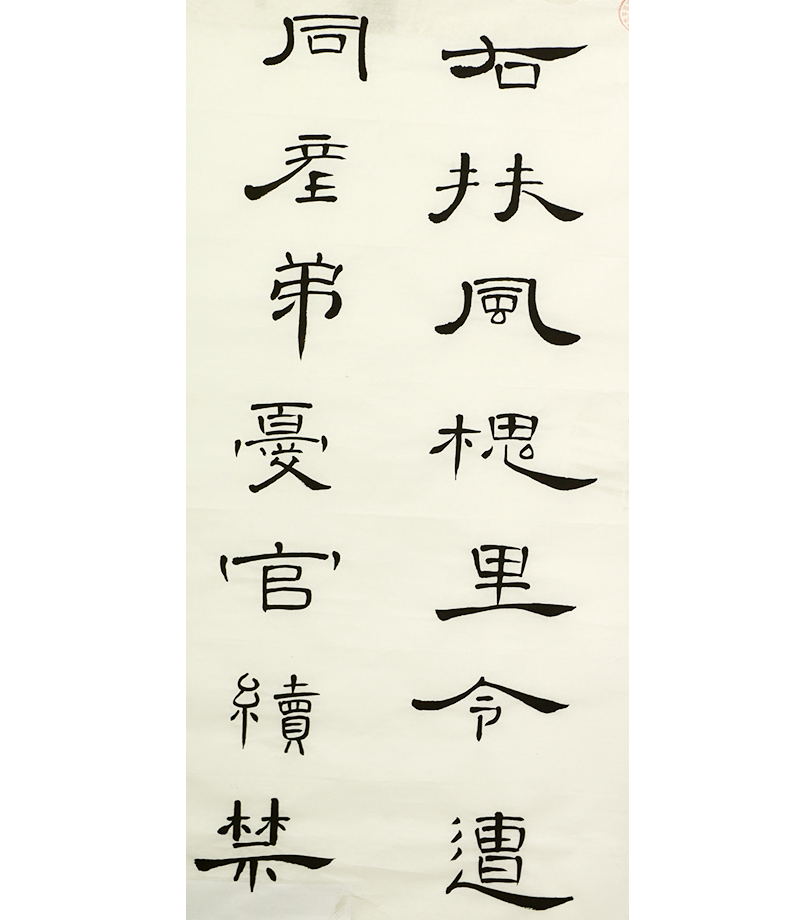 右扶風槐里令遭
同產弟憂官續禁